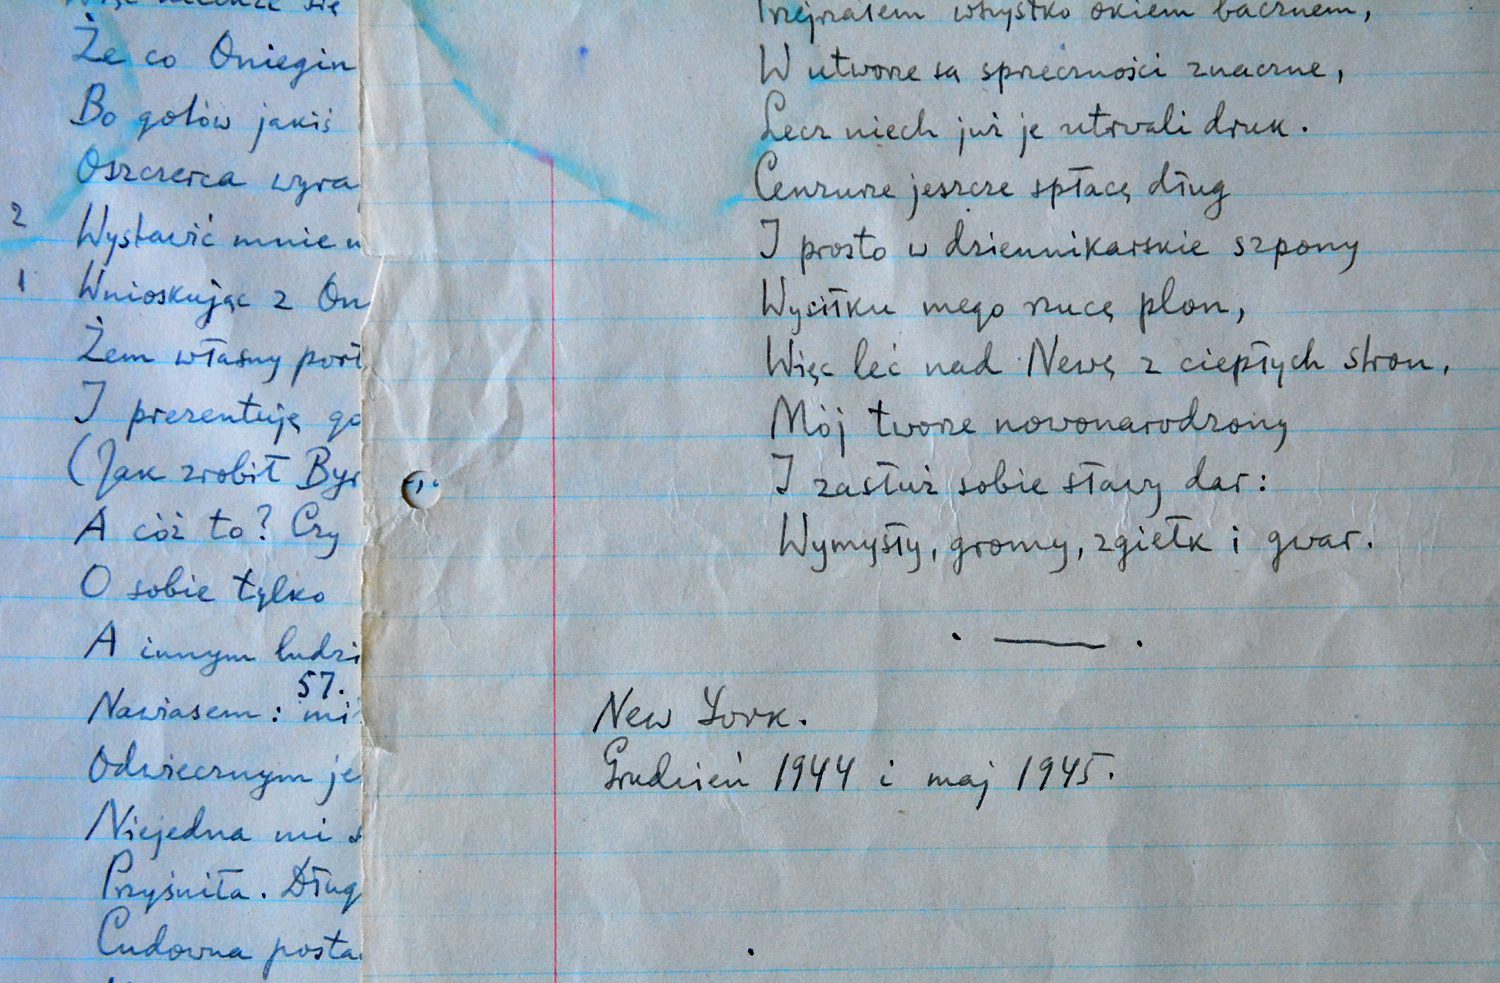 Że co Oniegin
Bo gotów jakiś
Oszczerca wyra
2 Wystawić mnie
1 Wnioskując z On
Żem własny port
I prezentuję go
(Jak zrobił Byr
A cóż to? Czy
O sobie tylko
A innym ludzi
57.
Nawiasem: mi
Odwiecznym je
Niejedna mi s
Przyśniła. Dług
Cudowna posta
Przejrzałem wszystko okiem bacznem,
W utworze są sprzeczności znaczne,
Lecz niech już je utrwali druk.
Cenzurze jeszcze spłacę dług
I prosto w dziennikarskie szpony
Wysiłku mego rzucę plon,
Więc leć nad Newę z ciepłych stron,
Mój tworze nowonarodzony
I zasłuż sobie sławy dar:
Wymysły, gromy, zgiełk i gwar.
New York.
Grudzień 1944 i maj 1945.